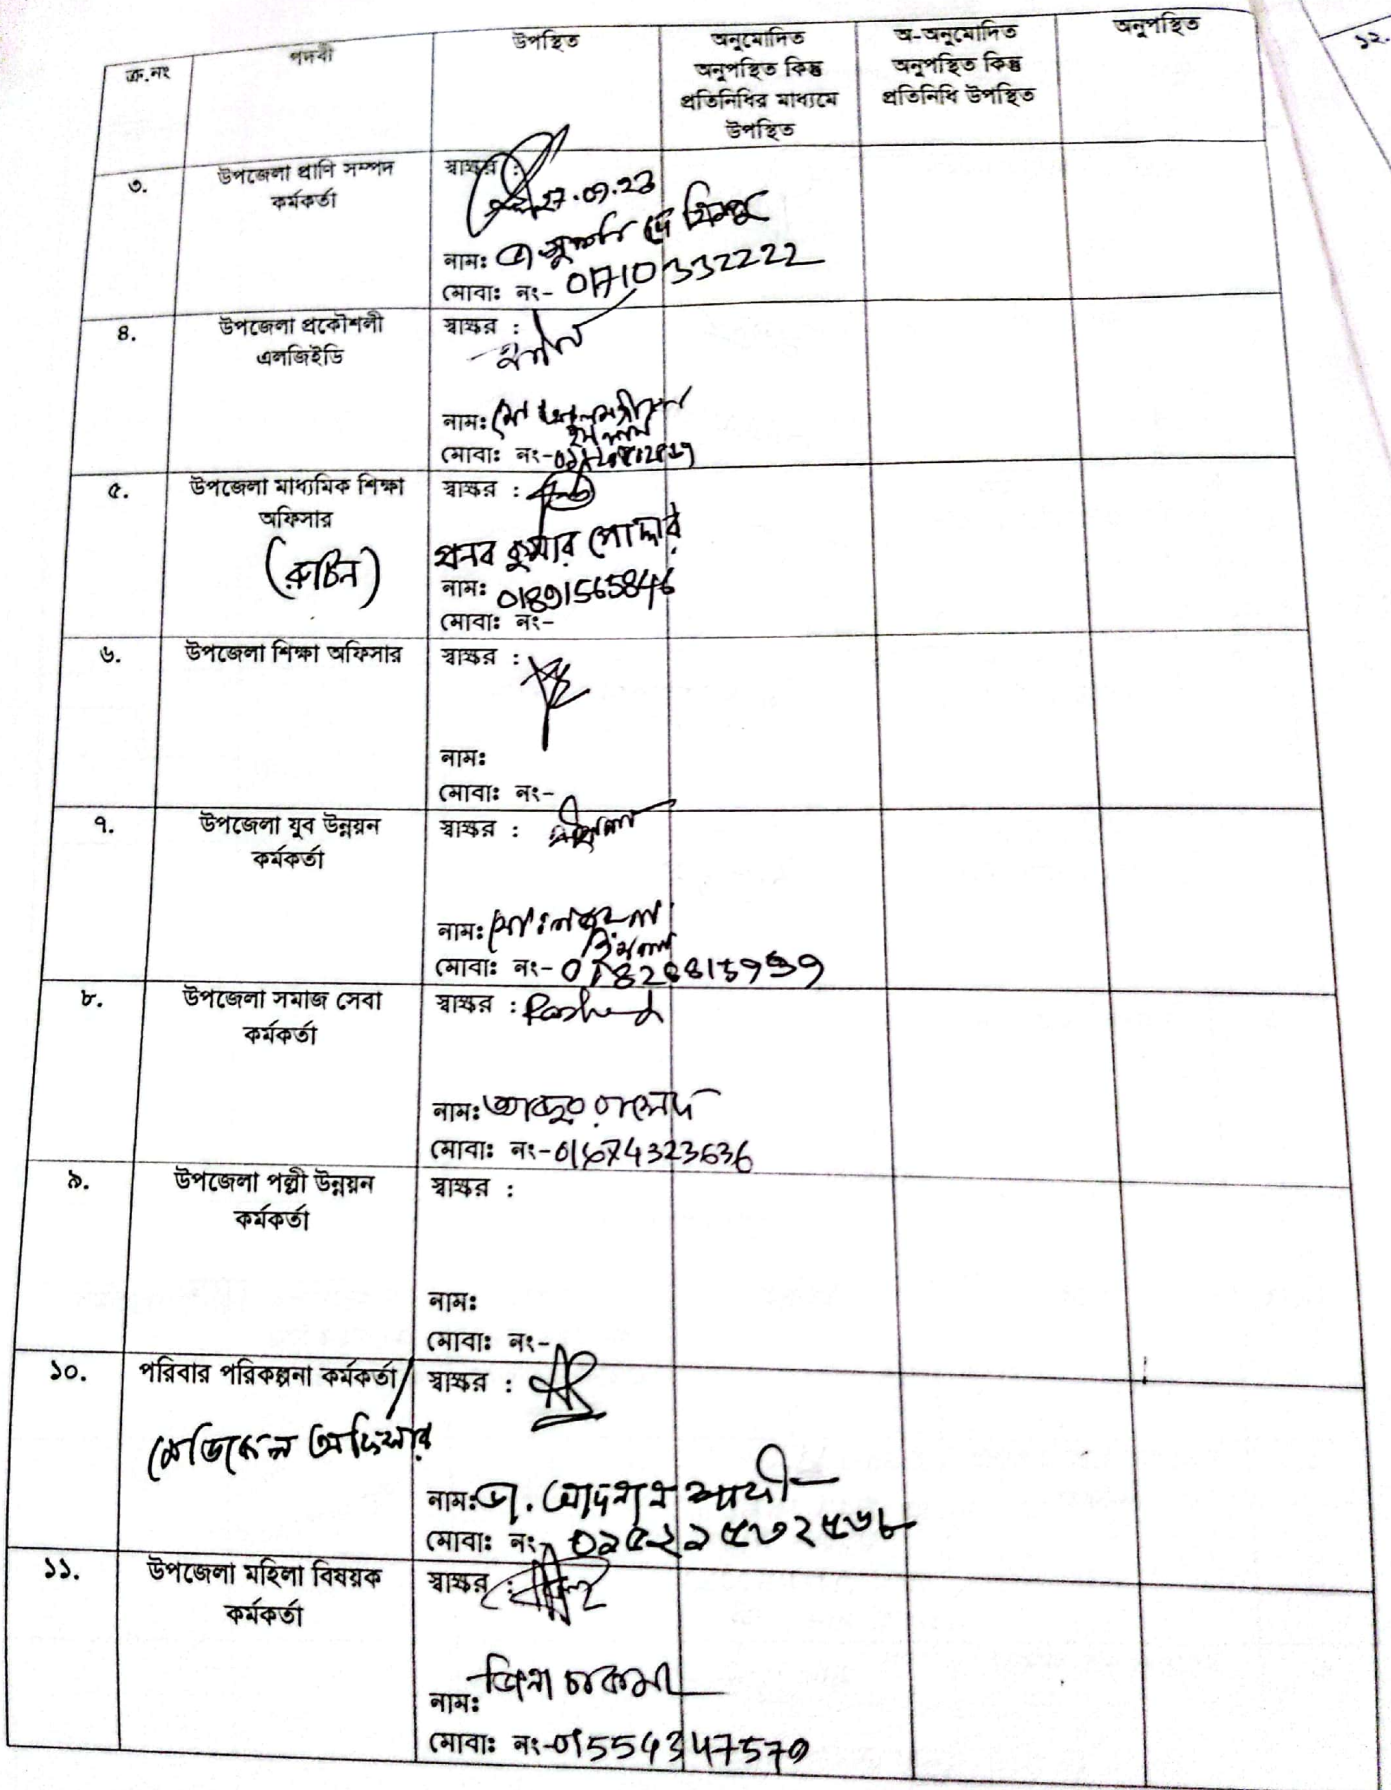 ক্র.নং
পদবী
উপস্থিত
অনুমোদিত
অনুপস্থিত কিন্তু
প্রতিনিধির মাধ্যমে
উপস্থিত
অ-অনুমোদিত
অনুপস্থিত কিন্তু
প্রতিনিধি উপস্থিত
অনুপস্থিত
১২.
৩.
উপজেলা প্রাণি সম্পদ
কর্মকর্তা
স্বাক্ষর :
27.09.23
নাম:
মোবাঃ নং- 01710332222
৪.
উপজেলা প্রকৌশলী
এলজিইডি
স্বাক্ষর :
নাম: মোঃ
মোবাঃ নং-
৫.
উপজেলা মাধ্যমিক শিক্ষা
অফিসার
(রুটিন)
স্বাক্ষর :
প্রনব কুমার পোদ্দার
নাম: 01891565846
মোবাঃ নং-
৬.
উপজেলা শিক্ষা অফিসার
স্বাক্ষর :
নাম:
মোবাঃ নং-
৭.
উপজেলা যুব উন্নয়ন
কর্মকর্তা
স্বাক্ষর :
নাম: মোঃ
মোবাঃ নং-
৮.
উপজেলা সমাজ সেবা
কর্মকর্তা
স্বাক্ষর : Rashed
নাম:
মোবাঃ নং-01674323636
৯.
উপজেলা পল্লী উন্নয়ন
কর্মকর্তা
স্বাক্ষর :
নাম:
মোবাঃ নং-
১০.
পরিবার পরিকল্পনা কর্মকর্তা/
মেডিকেল অফিসার
স্বাক্ষর :
নাম: ডা.
মোবাঃ নং-
১১.
উপজেলা মহিলা বিষয়ক
কর্মকর্তা
স্বাক্ষর :
নাম: চাকমা
মোবাঃ নং-